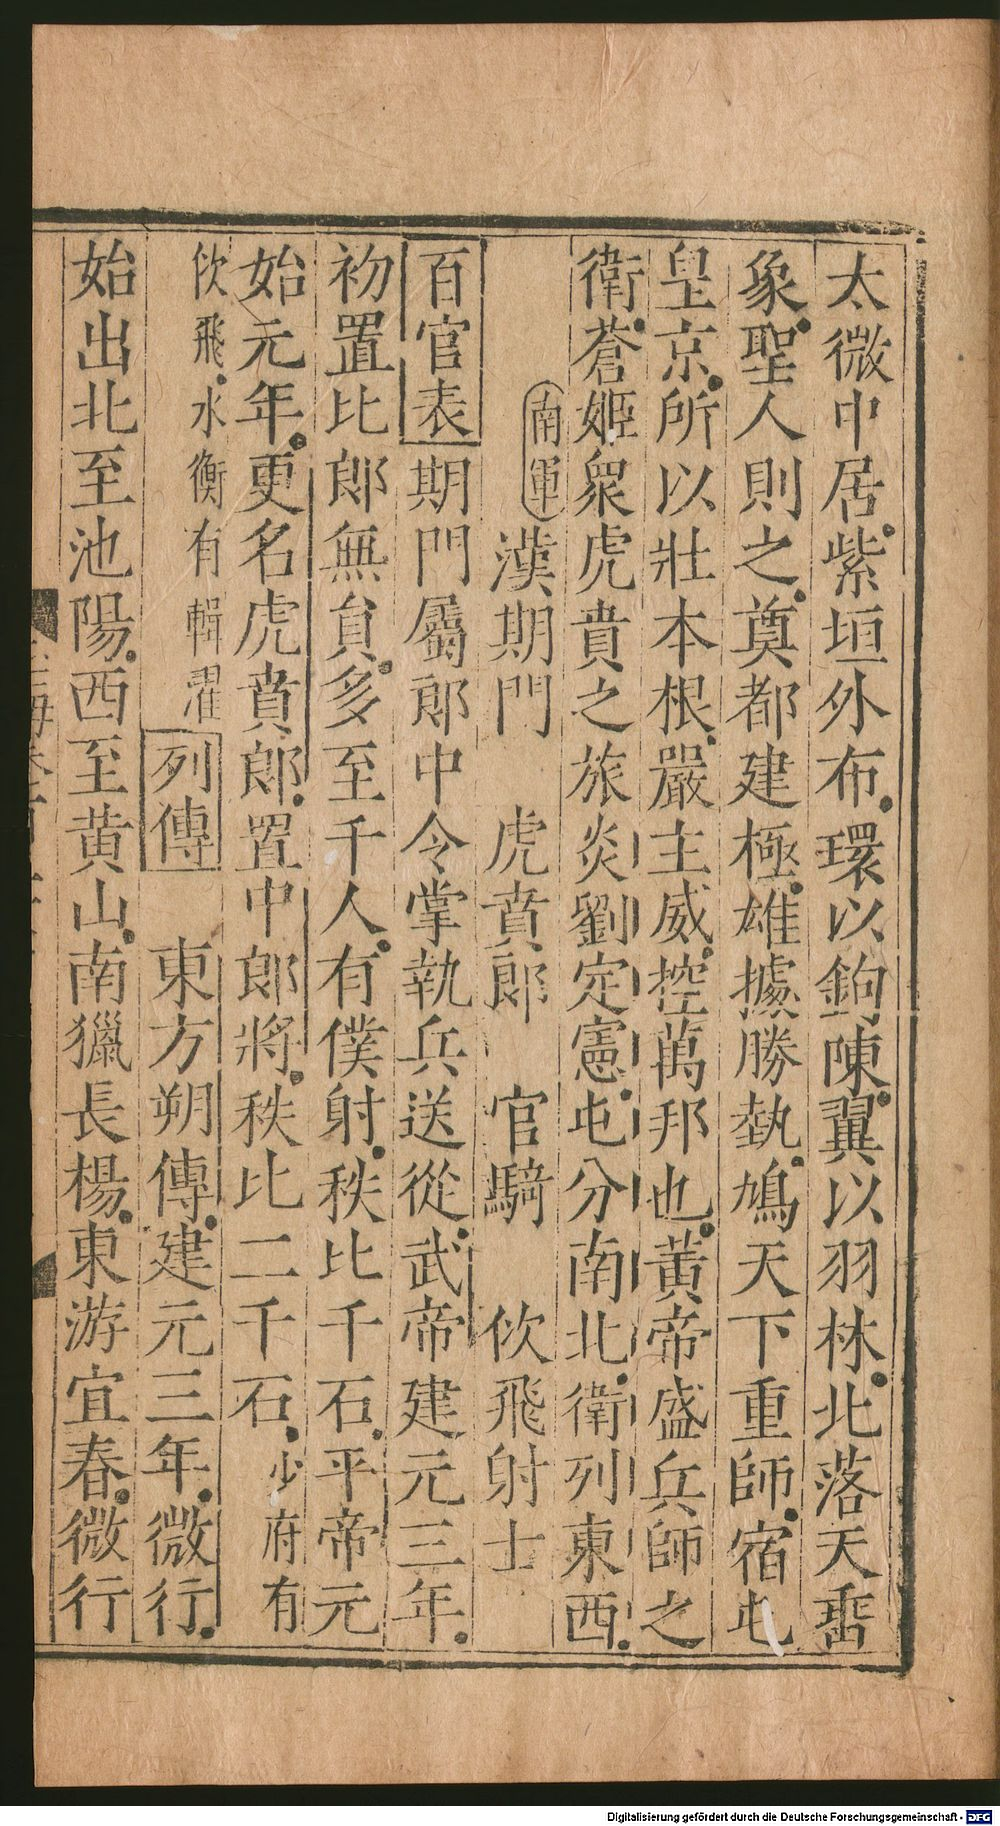 太微中居紫垣外布環以鉤陳翼以羽林北落天壘
象聖人則之奠都建極雄據勝埶鳩天下重師宿屯
皇京所以壯本根嚴主威控萬邦也黃帝盛兵師之
衛蒼姬衆虎賁之旅炎劉定憲屯分南北衛列東西
南軍 漢期門 虎賁郎 官騎 佽飛射士
百官表期門屬郎中令掌執兵送從武帝建元三年
初置比郎無貟多至千人有僕射秩比千石平帝元
始元年更名虎賁郎置中郎將秩比二千石少府有
佽飛水衡有輯濯列傳 東方朔傳建元三年微行
始出北至池陽西至黃山南獵長楊東游宜春微行
Digitalisierung gefördert durch die Deutsche Forschungsgemeinschaft - DFG